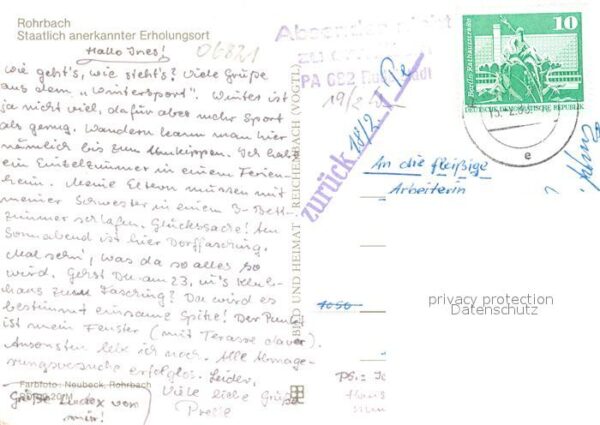 Rohrbach
Staatlich anerkannter Erholungsort
06821
Hallo Ines!
Wie geht's, wie steht's? Viele Grüße
aus dem „Wintersport". Winter ist
ja nicht viel, dafür aber mehr Sport
als genug. Wandern kann man hier
nämlich bis zum Umkippen. Ich hab
ein Einbettzimmer in einem Ferien-
heim. Meine Eltern müssen mit
meiner Schwester in einem 3-Bett-
zimmer schlafen. Glückssache! Am
Sonnabend ist hier Dorffasching.
Mal seh'n, was da so alles so
wird. Gehst Du am 23. in's Klub-
haus zum Fasching? Da wird es
bestimmt einsame Spitze! Der Punkt
ist mein Fenster (mit Terasse davor).
Ansonsten leb ich noch. Alle Abmage-
rungsversuche erfolglos. Leider.
Viele liebe Grüße
Grüße von
mir!
Farbfoto: Neubeck, Rohrbach
BILD UND HEIMAT REICHENBACH (VOGTL
Absender nicht
zu
PA 682
19/2
18/2
zurück
10
Berlin·Rathausstraße
DEUTSCHE DEMOKRATISCHE REPUBLIK
e
An die fleißige
Arbeiterin
privacy protection
Datenschutz
PS.: